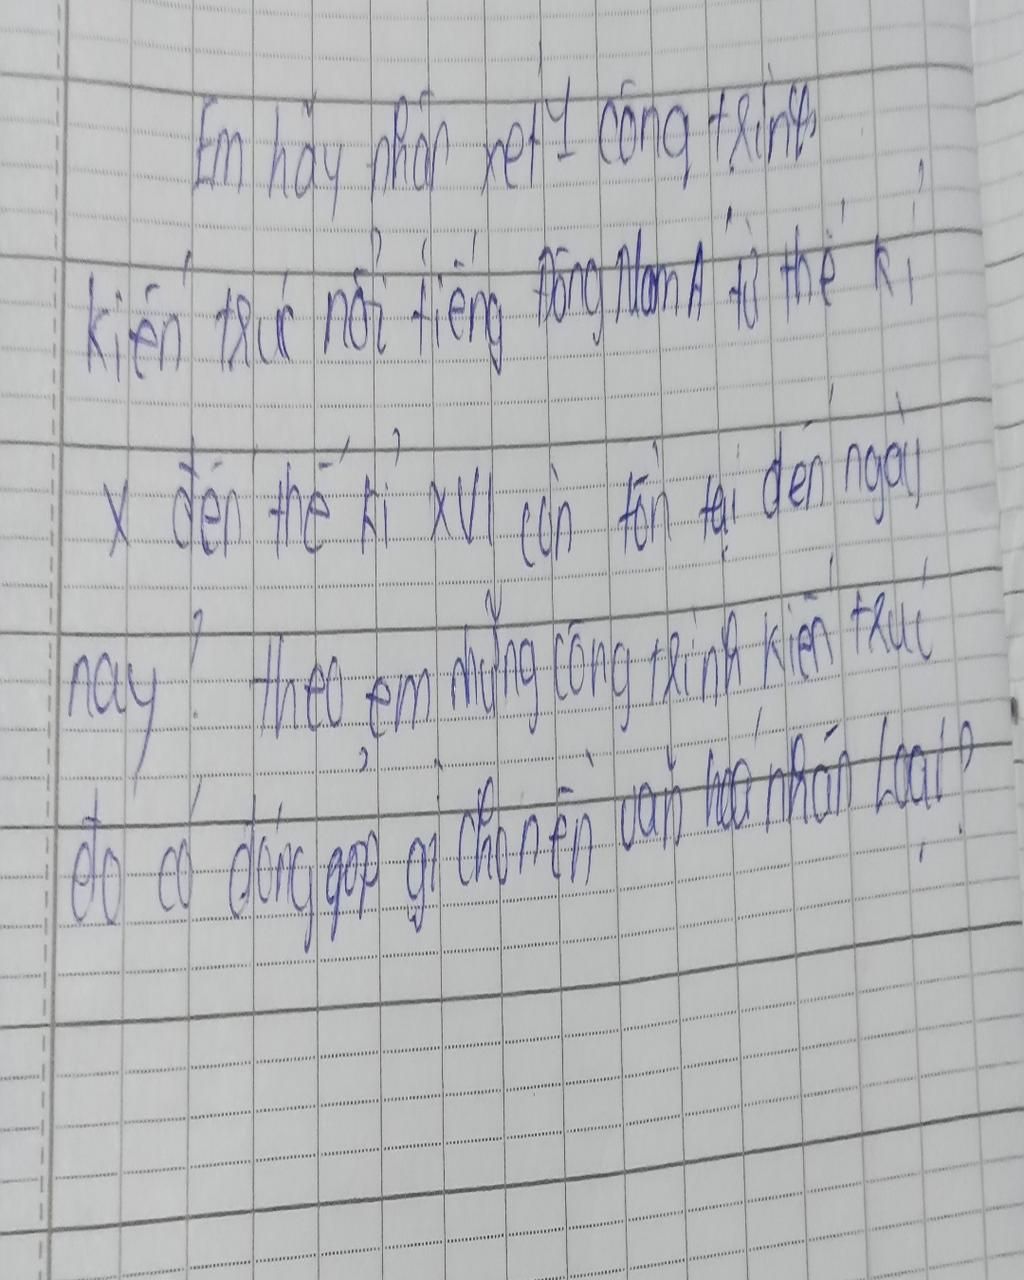 Em hãy nhận xét 1 công trình
kiến trúc nổi tiếng Đông Nam Á từ thế kỉ
X đến thế kỉ XVI còn tồn tại đến ngày
nay? theo em những công trình kiến trúc
đó có đóng góp gì cho nền văn hoá nhân loại?